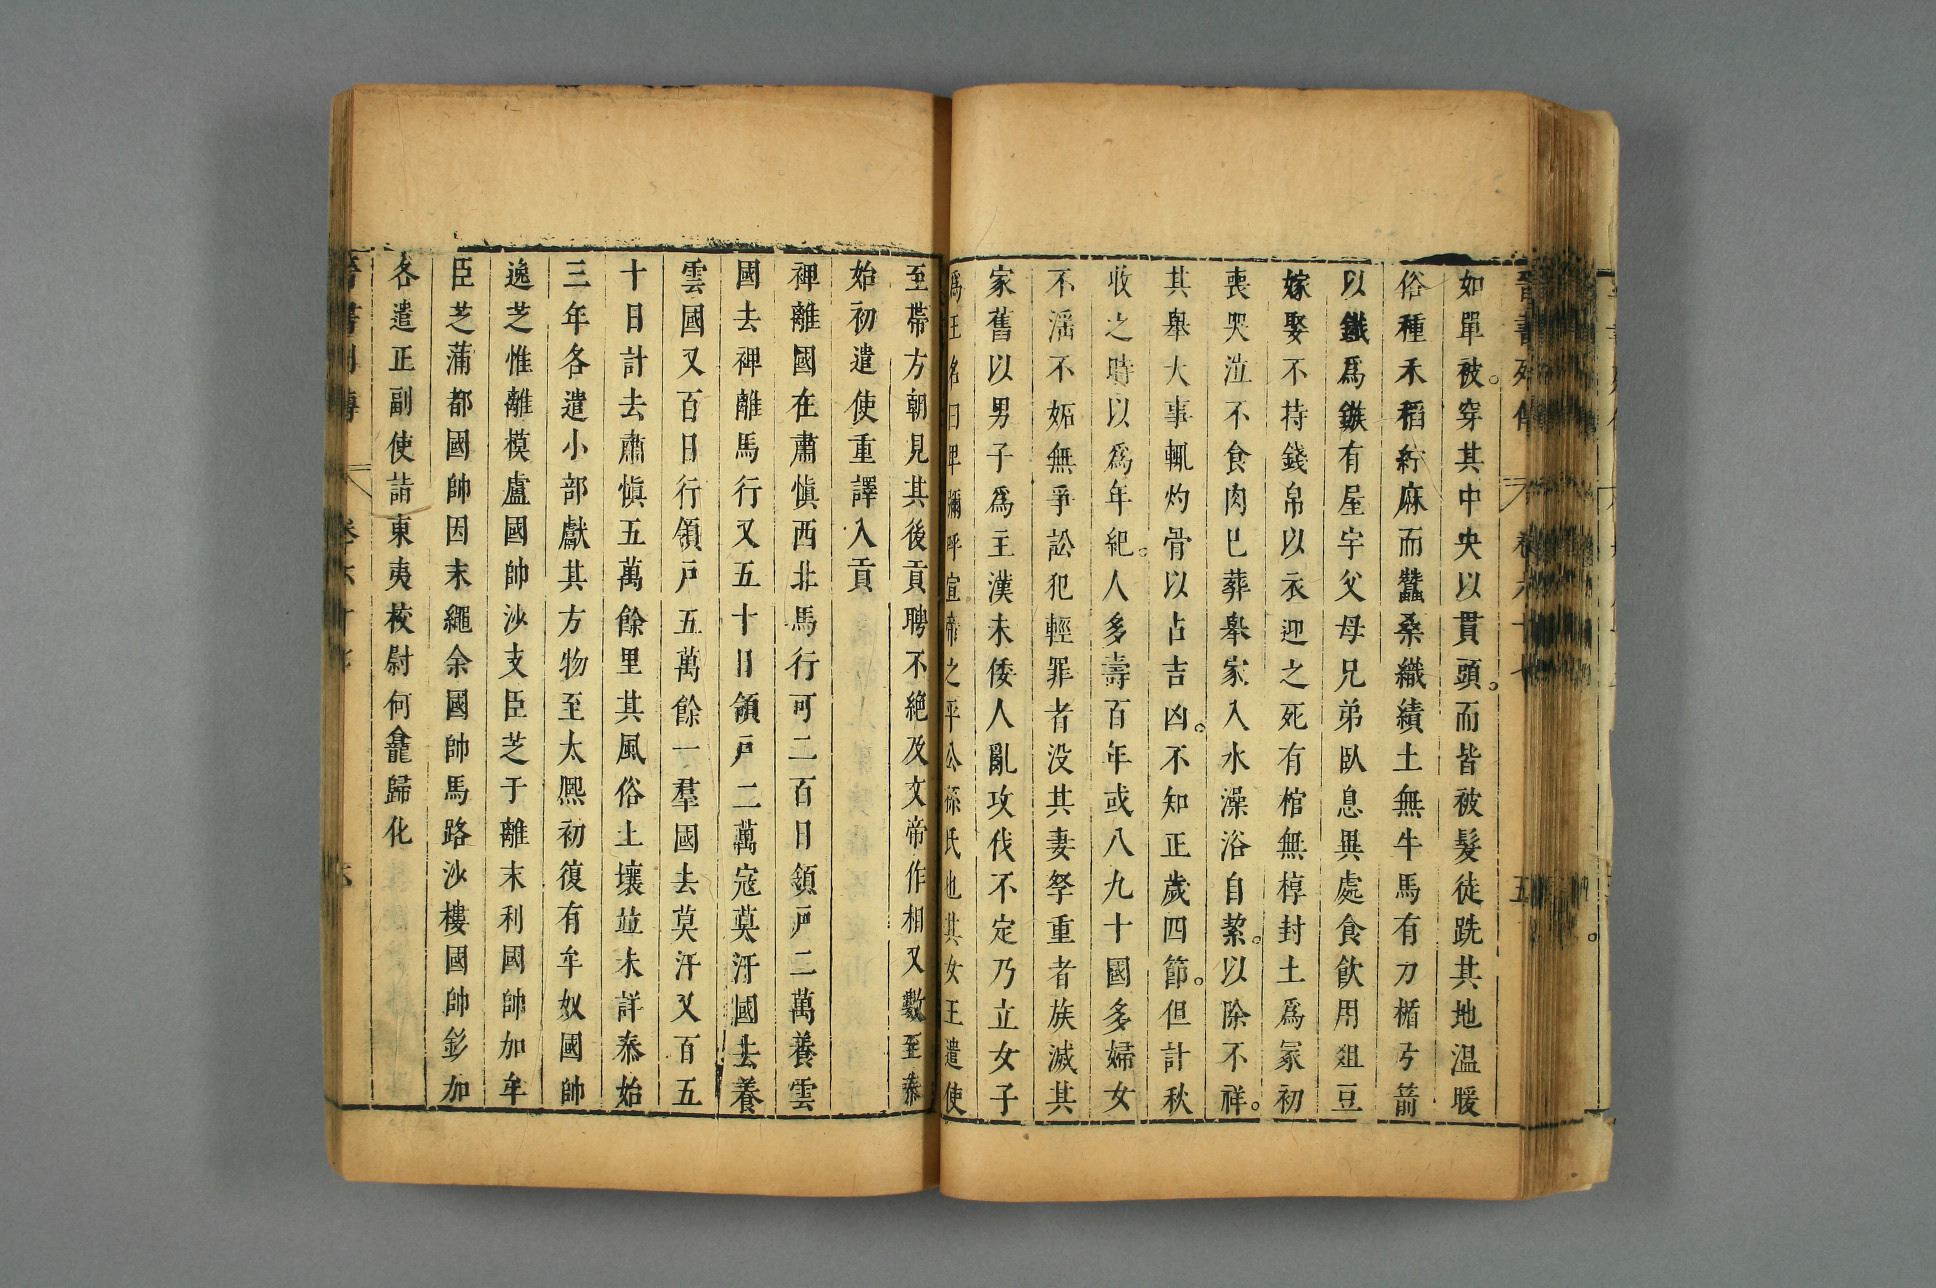 如單被穿其中央以貫頭而皆被髮徒跣其地温暖
俗種禾稻紵麻而蠶桑織績土無牛馬有刀楯弓箭
以鐵爲鏃有屋宇父母兄弟臥息異處食飲用俎豆
嫁娶不持錢帛以衣迎之死有棺無槨封土爲冢初
喪哭泣不食肉已葬舉家入水澡浴自潔以除不祥
其舉大事輒灼骨以占吉凶不知正歲四節但計秋
收之時以爲年紀人多壽百年或八九十國多婦女
不滛不妬無爭訟犯輕罪者没其妻孥重者族滅其
家舊以男子爲主漢末倭人亂攻伐不定乃立女子
爲王名曰卑彌呼宣帝之平公孫氏也其女王遣使
至帶方朝見其後貢聘不絶及文帝作相又數至泰
始初遣使重譯入貢
裨離國在肅慎西北馬行可二百日領戸二萬養雲
國去裨離馬行又五十日領戸二萬寇莫汙國去養
雲國又百日行領戸五萬餘一羣國去莫汙又百五
十日計去肅慎五萬餘里其風俗土壤並未詳泰始
三年各遣小部獻其方物至太熙初復有牟奴國帥
逸芝惟離模盧國帥沙支臣芝于離末利國帥加牟
臣芝蒲都國帥因末繩余國帥馬路沙樓國帥釤加
各遣正副使詣東夷校尉何龕歸化
晉書列傳 卷六十七 六